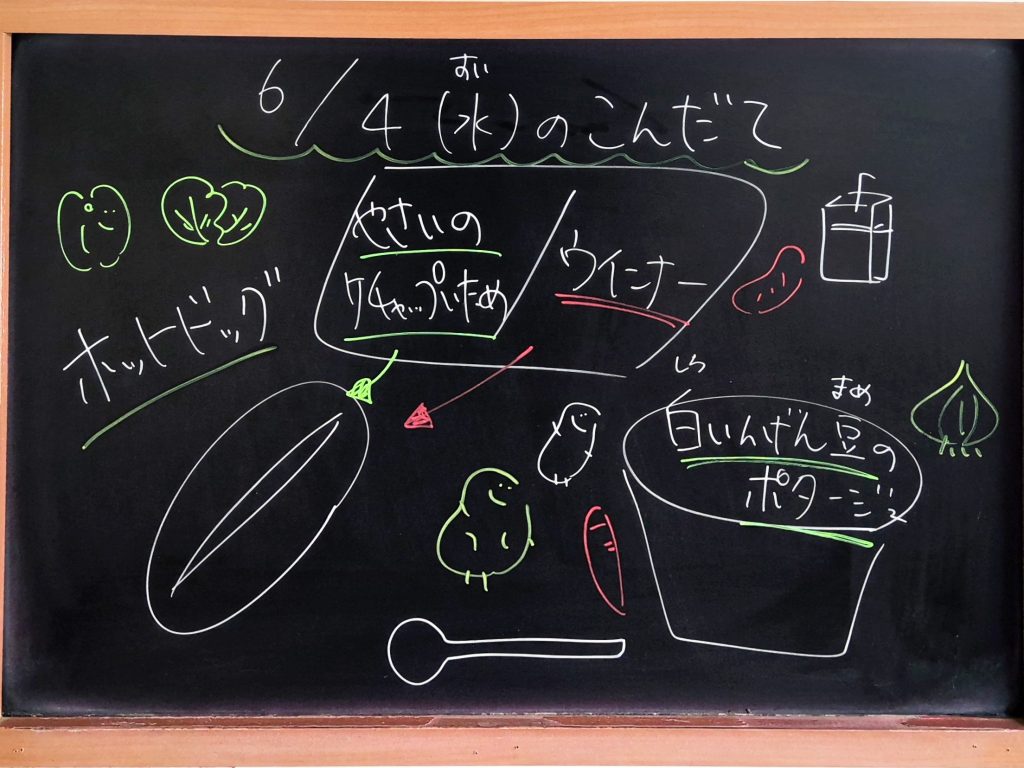 6/4(水)のこんだて
すい
やさいの
ケチャップいため
ウインナー
ホットドッグ
しろ
まめ
白いんげん豆の
ポタージュ